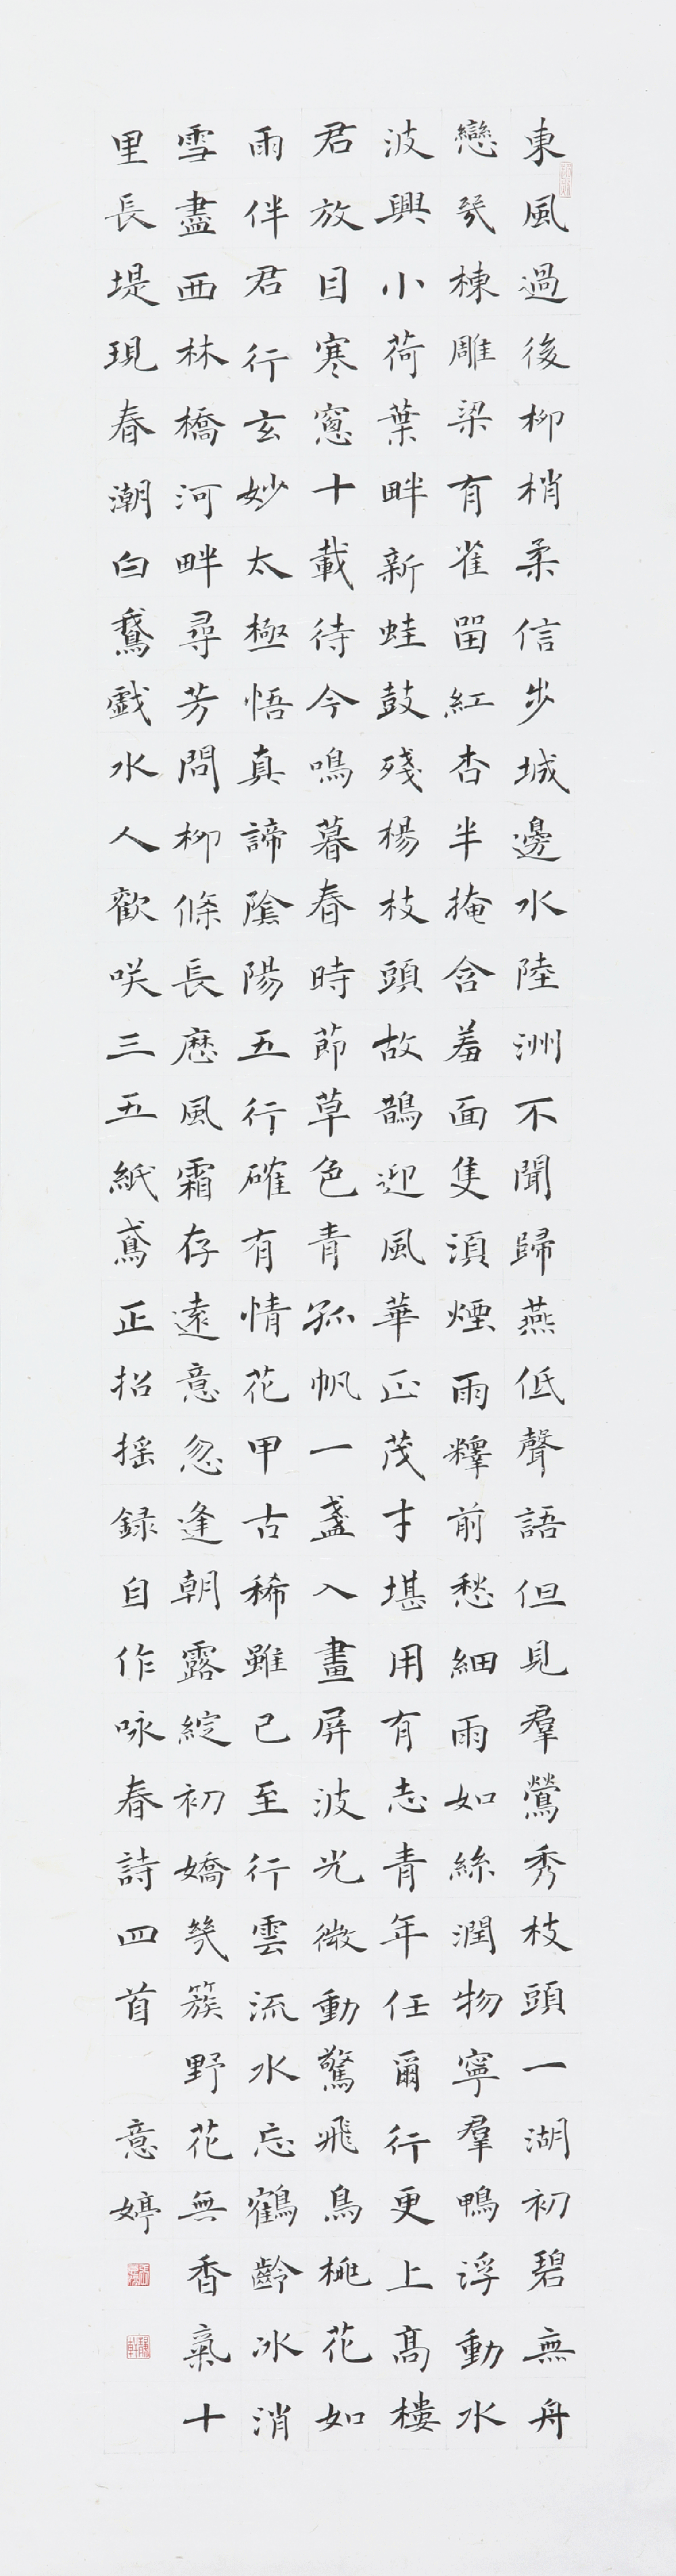 東風過後柳梢柔信步城邊水陸洲不聞歸燕低聲語但見羣鶯秀枝頭一湖初碧無舟
戀幾棟雕梁有雀留紅杏半掩含羞面隻須煙雨釋前愁細雨如絲潤物寧羣鴨浮動水
波興小荷葉畔新蛙鼓殘楊枝頭故鵲迎風華正茂才堪用有志青年任爾行更上高樓
君放目寒窗十載待今鳴暮春時節草色青孤帆一盞入畫屏波光微動驚飛鳥桃花如
雨伴君行玄妙太極悟真諦陰陽五行確有情花甲古稀雖已至行雲流水忘鶴齡冰消
雪盡西林橋河畔尋芳問柳條長歷風霜存遠意忽逢朝露綻初嬌幾簇野花無香氣十
里長堤現春潮白鵞戲水人歡咲三五紙鳶正招搖録自作咏春詩四首 意婷